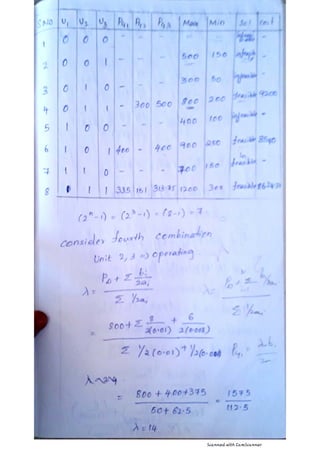 S.NO U1 U3 U2 PG1 PG2 PG3 Max Min Sol cost
1 0 0 0 - - - - -
2 0 0 1 - - - 500 150 -
3 0 1 0 - - - 300 50 infeasible -
4 0 1 1 - 300 500 800 200 feasible 9200
5 1 0 0 - - - 400 100 infeasible -
6 1 0 1 400 - 400 900 250 feasible
7 1 1 0 - - - 700 150 infeasible -
8 1 1 1 1200 300 feasible
(2ⁿ-1) = (2³-1) = (8-1) = 7
consider fourth combination
Unit 2, 3 => operating
λ = PD + Σ bi/2ai
Σ 1/2ai
= 800 + Σ 8/2(0.01) + 6/2(0.008)
Σ 1/2(0.01) + 1/2(0.008)
= 800 + 400 + 375 = 1575
50 + 62.5 112.5
λ = 14
Scanned with CamScanner